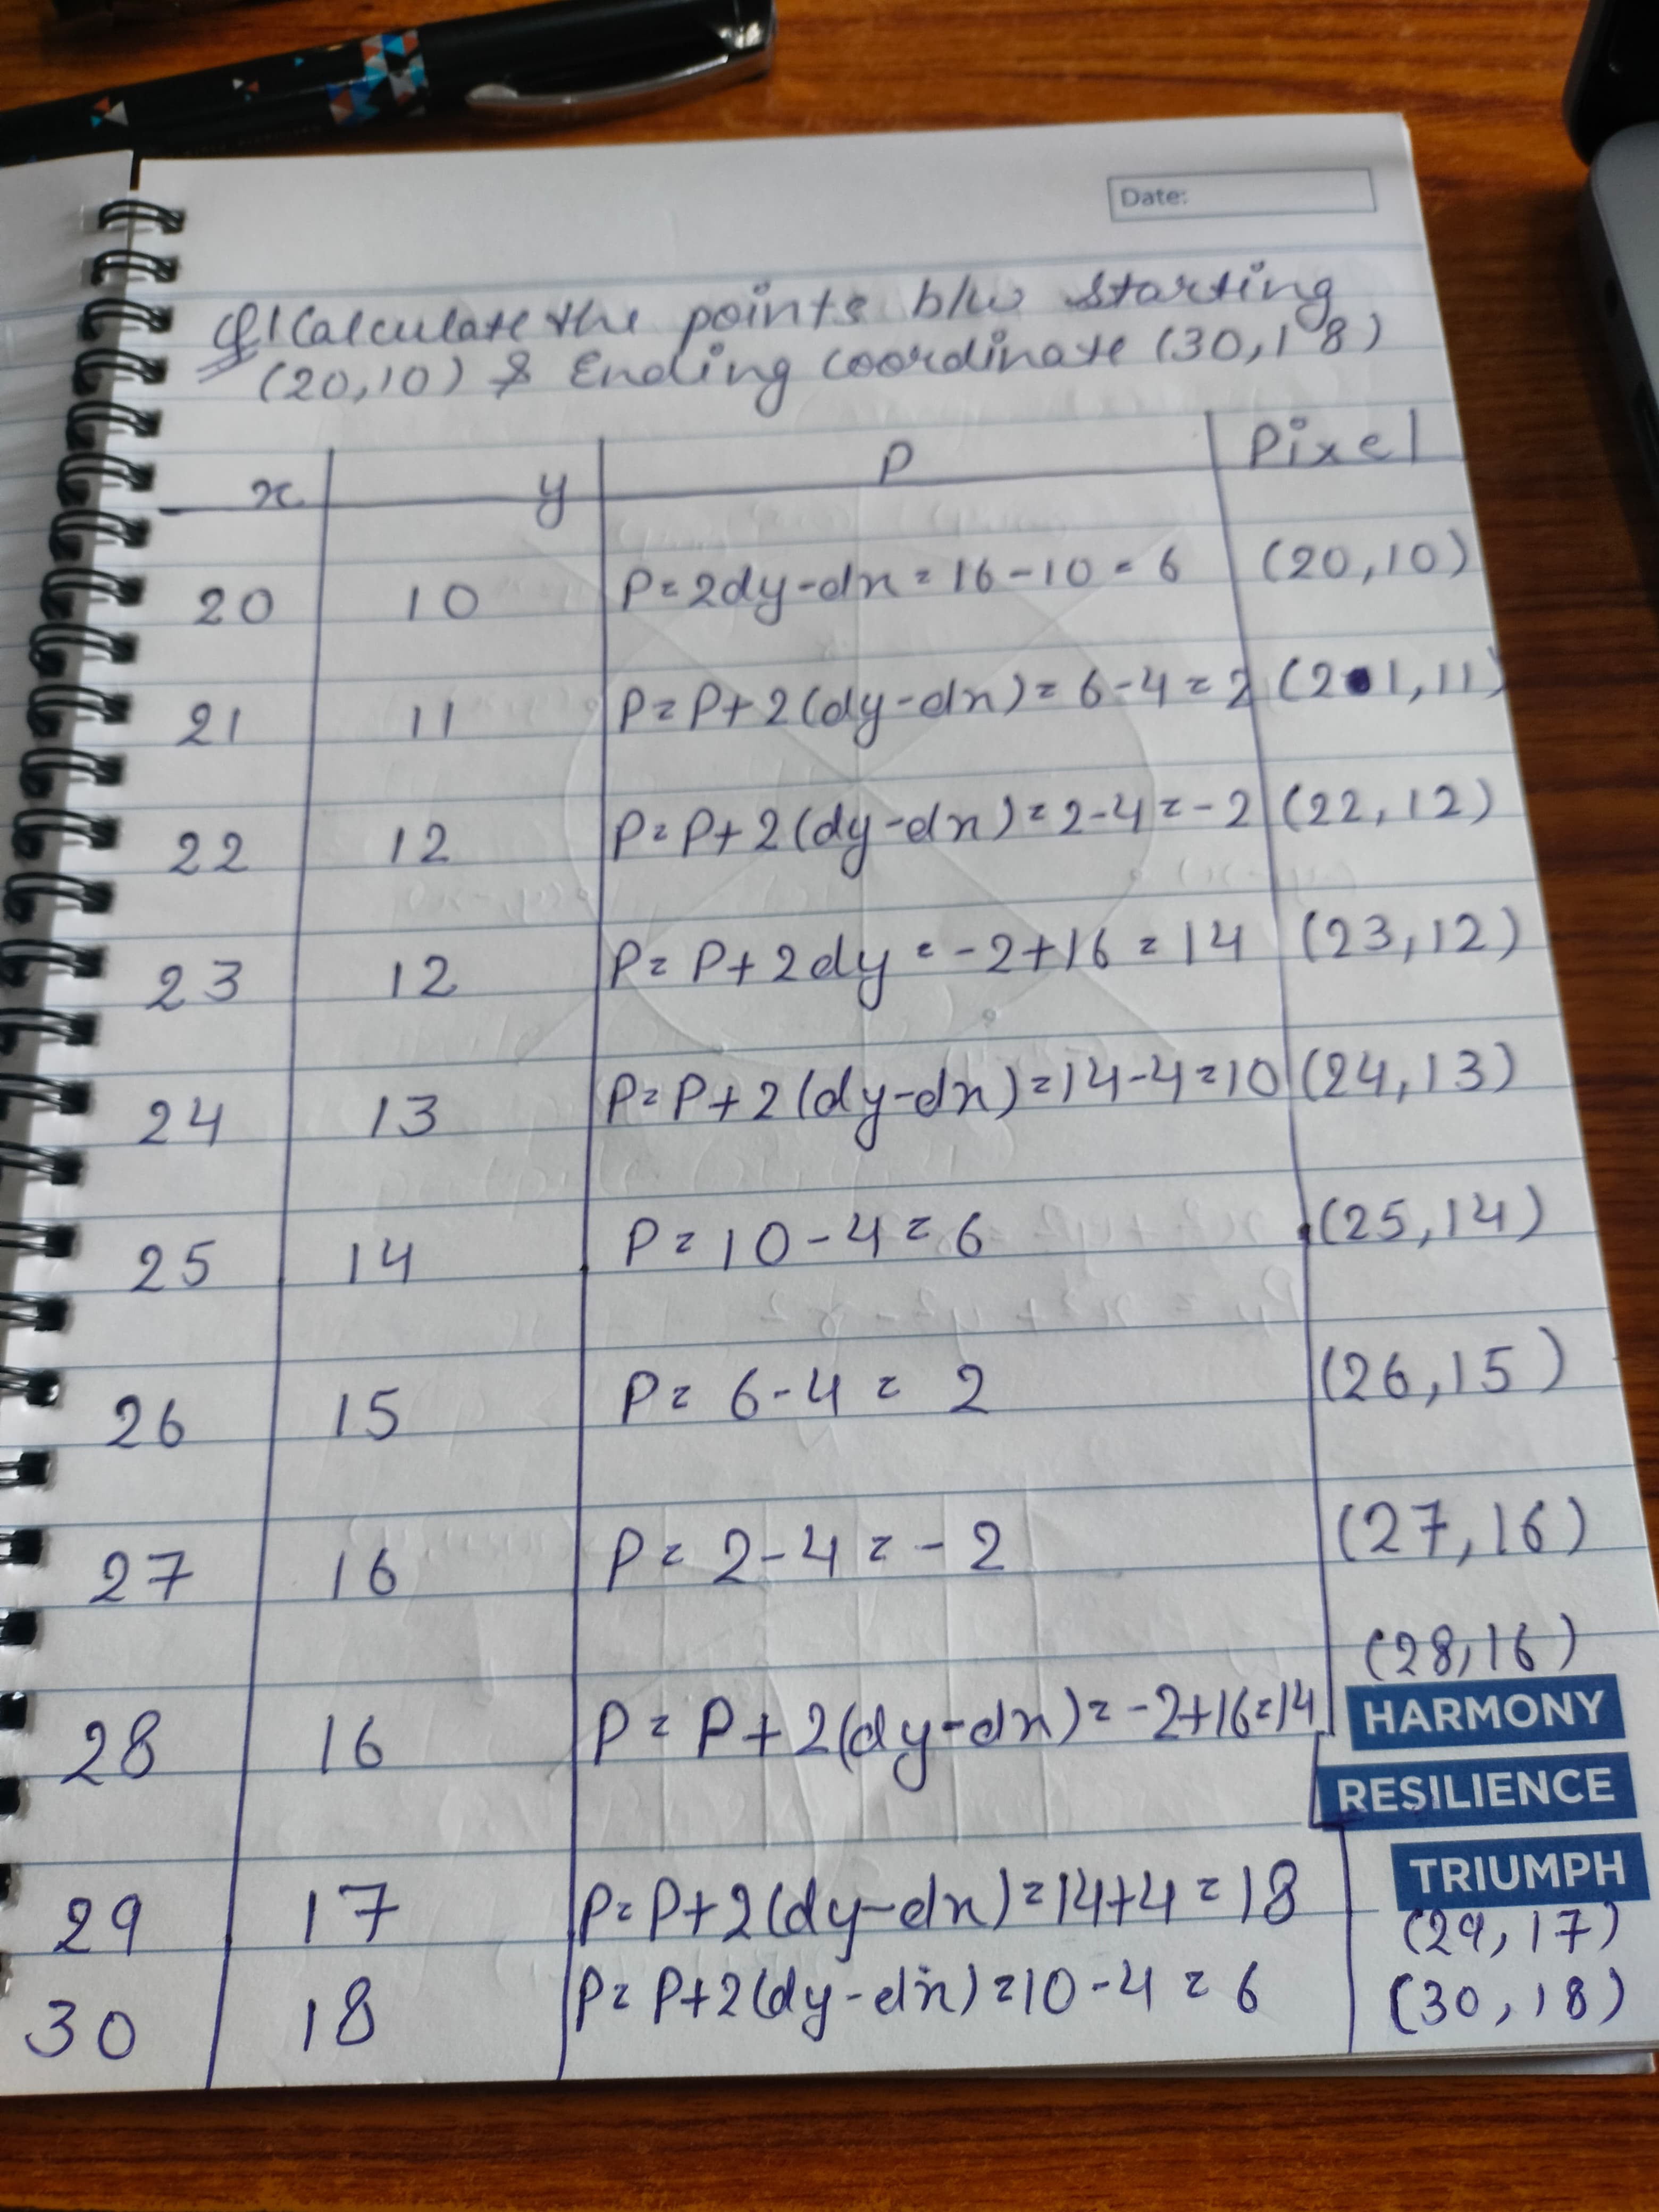 Date:
Q1 Calculate the points b/w starting
(20,10) & Ending coordinate (30,18)
x y P Pixel
20 10 P=2dy-dx=16-10=6 (20,10)
21 11 P=P+2(dy-dx)=6-4=2 (21,11)
22 12 P=P+2(dy-dx)=2-4=-2 (22,12)
23 12 P=P+2dy=-2+16=14 (23,12)
24 13 P=P+2(dy-dx)=14-4=10 (24,13)
25 14 P=10-4=6 (25,14)
26 15 P=6-4=2 (26,15)
27 16 P=2-4=-2 (27,16)
28 16 P=P+2(dy-dx)=-2+16=14 (28,16)
HARMONY
RESILIENCE
TRIUMPH
29 17 P=P+2(dy-dx)=14+4=18 (29,17)
30 18 P=P+2(dy-dx)=10-4=6 (30,18)